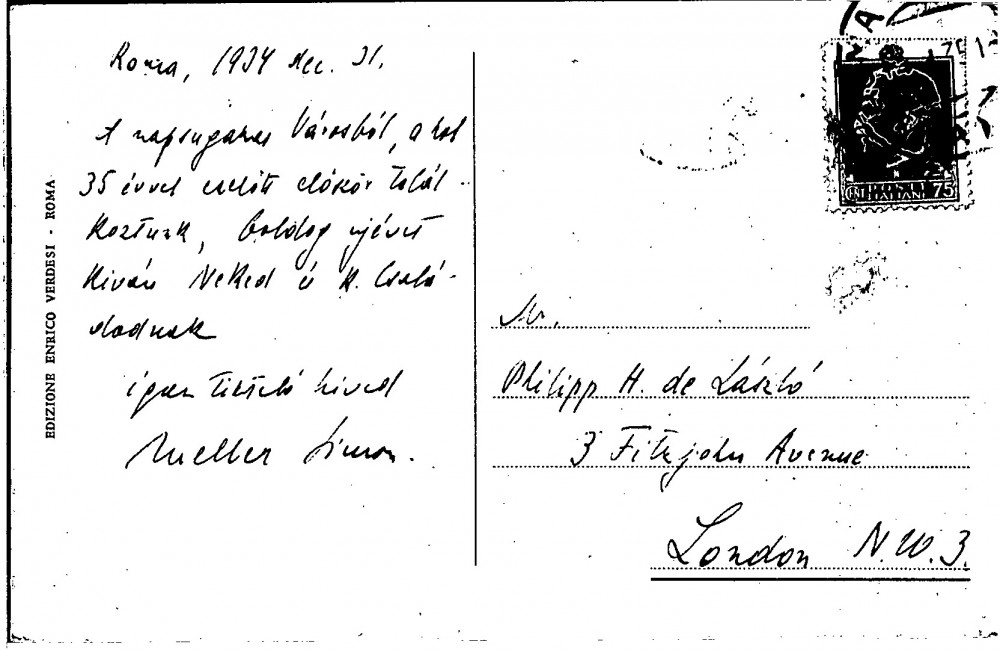 Roma, 1934 dec. 31.
A napsugaras Városból, a hol
35 évvel ezelőtt előszőr talál-
koztunk, boldog ujévet
kiván Neked és k. Csalá-
dodnak
igaz tisztelő hived
Meller Simon.
EDIZIONE ENRICO VERDESI - ROMA
Mr.
Philipp H. de László
3 Fitzjohn Avenue
London N.W.3.
75